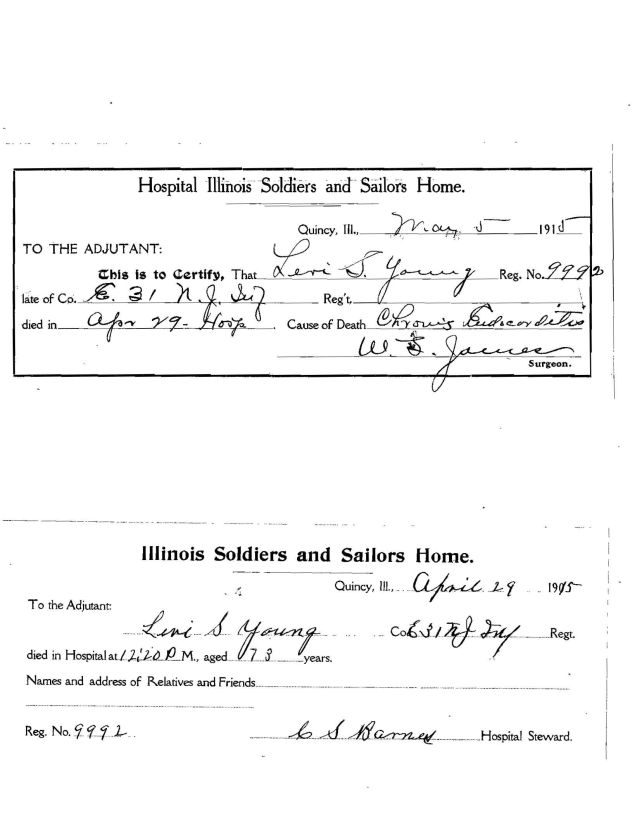 Hospital Illinois Soldiers and Sailors Home.
Quincy, Ill., May 5 1915
TO THE ADJUTANT:
This is to Certify, That Levi S. Young Reg. No. 9992
late of Co. E. 31 N.J. Inf Reg't,
died in Apr 29 - Hosp. Cause of Death Chronic Endocorditis
W. E. James
Surgeon.
Illinois Soldiers and Sailors Home.
Quincy, Ill., April 29 1915
To the Adjutant:
Levi S Young Co E 31 NJ Inf Regt.
died in Hospital at 12:20 P M., aged 73 years.
Names and address of Relatives and Friends
Reg. No. 9992 C S Barnes Hospital Steward.